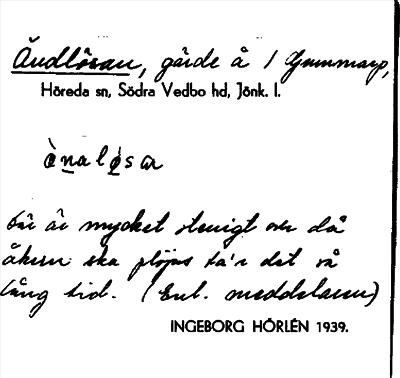 Ändlösan, gärde å 1 Gummarp,
Höreda sn, Södra Vedbo hd, Jönk. l.
ènalø̀sar
där är mycket stenigt och då
åkern ska plöjas ta'r det så
lång tid. (Enl. meddelaren)
INGEBORG HÖRLÉN 1939.